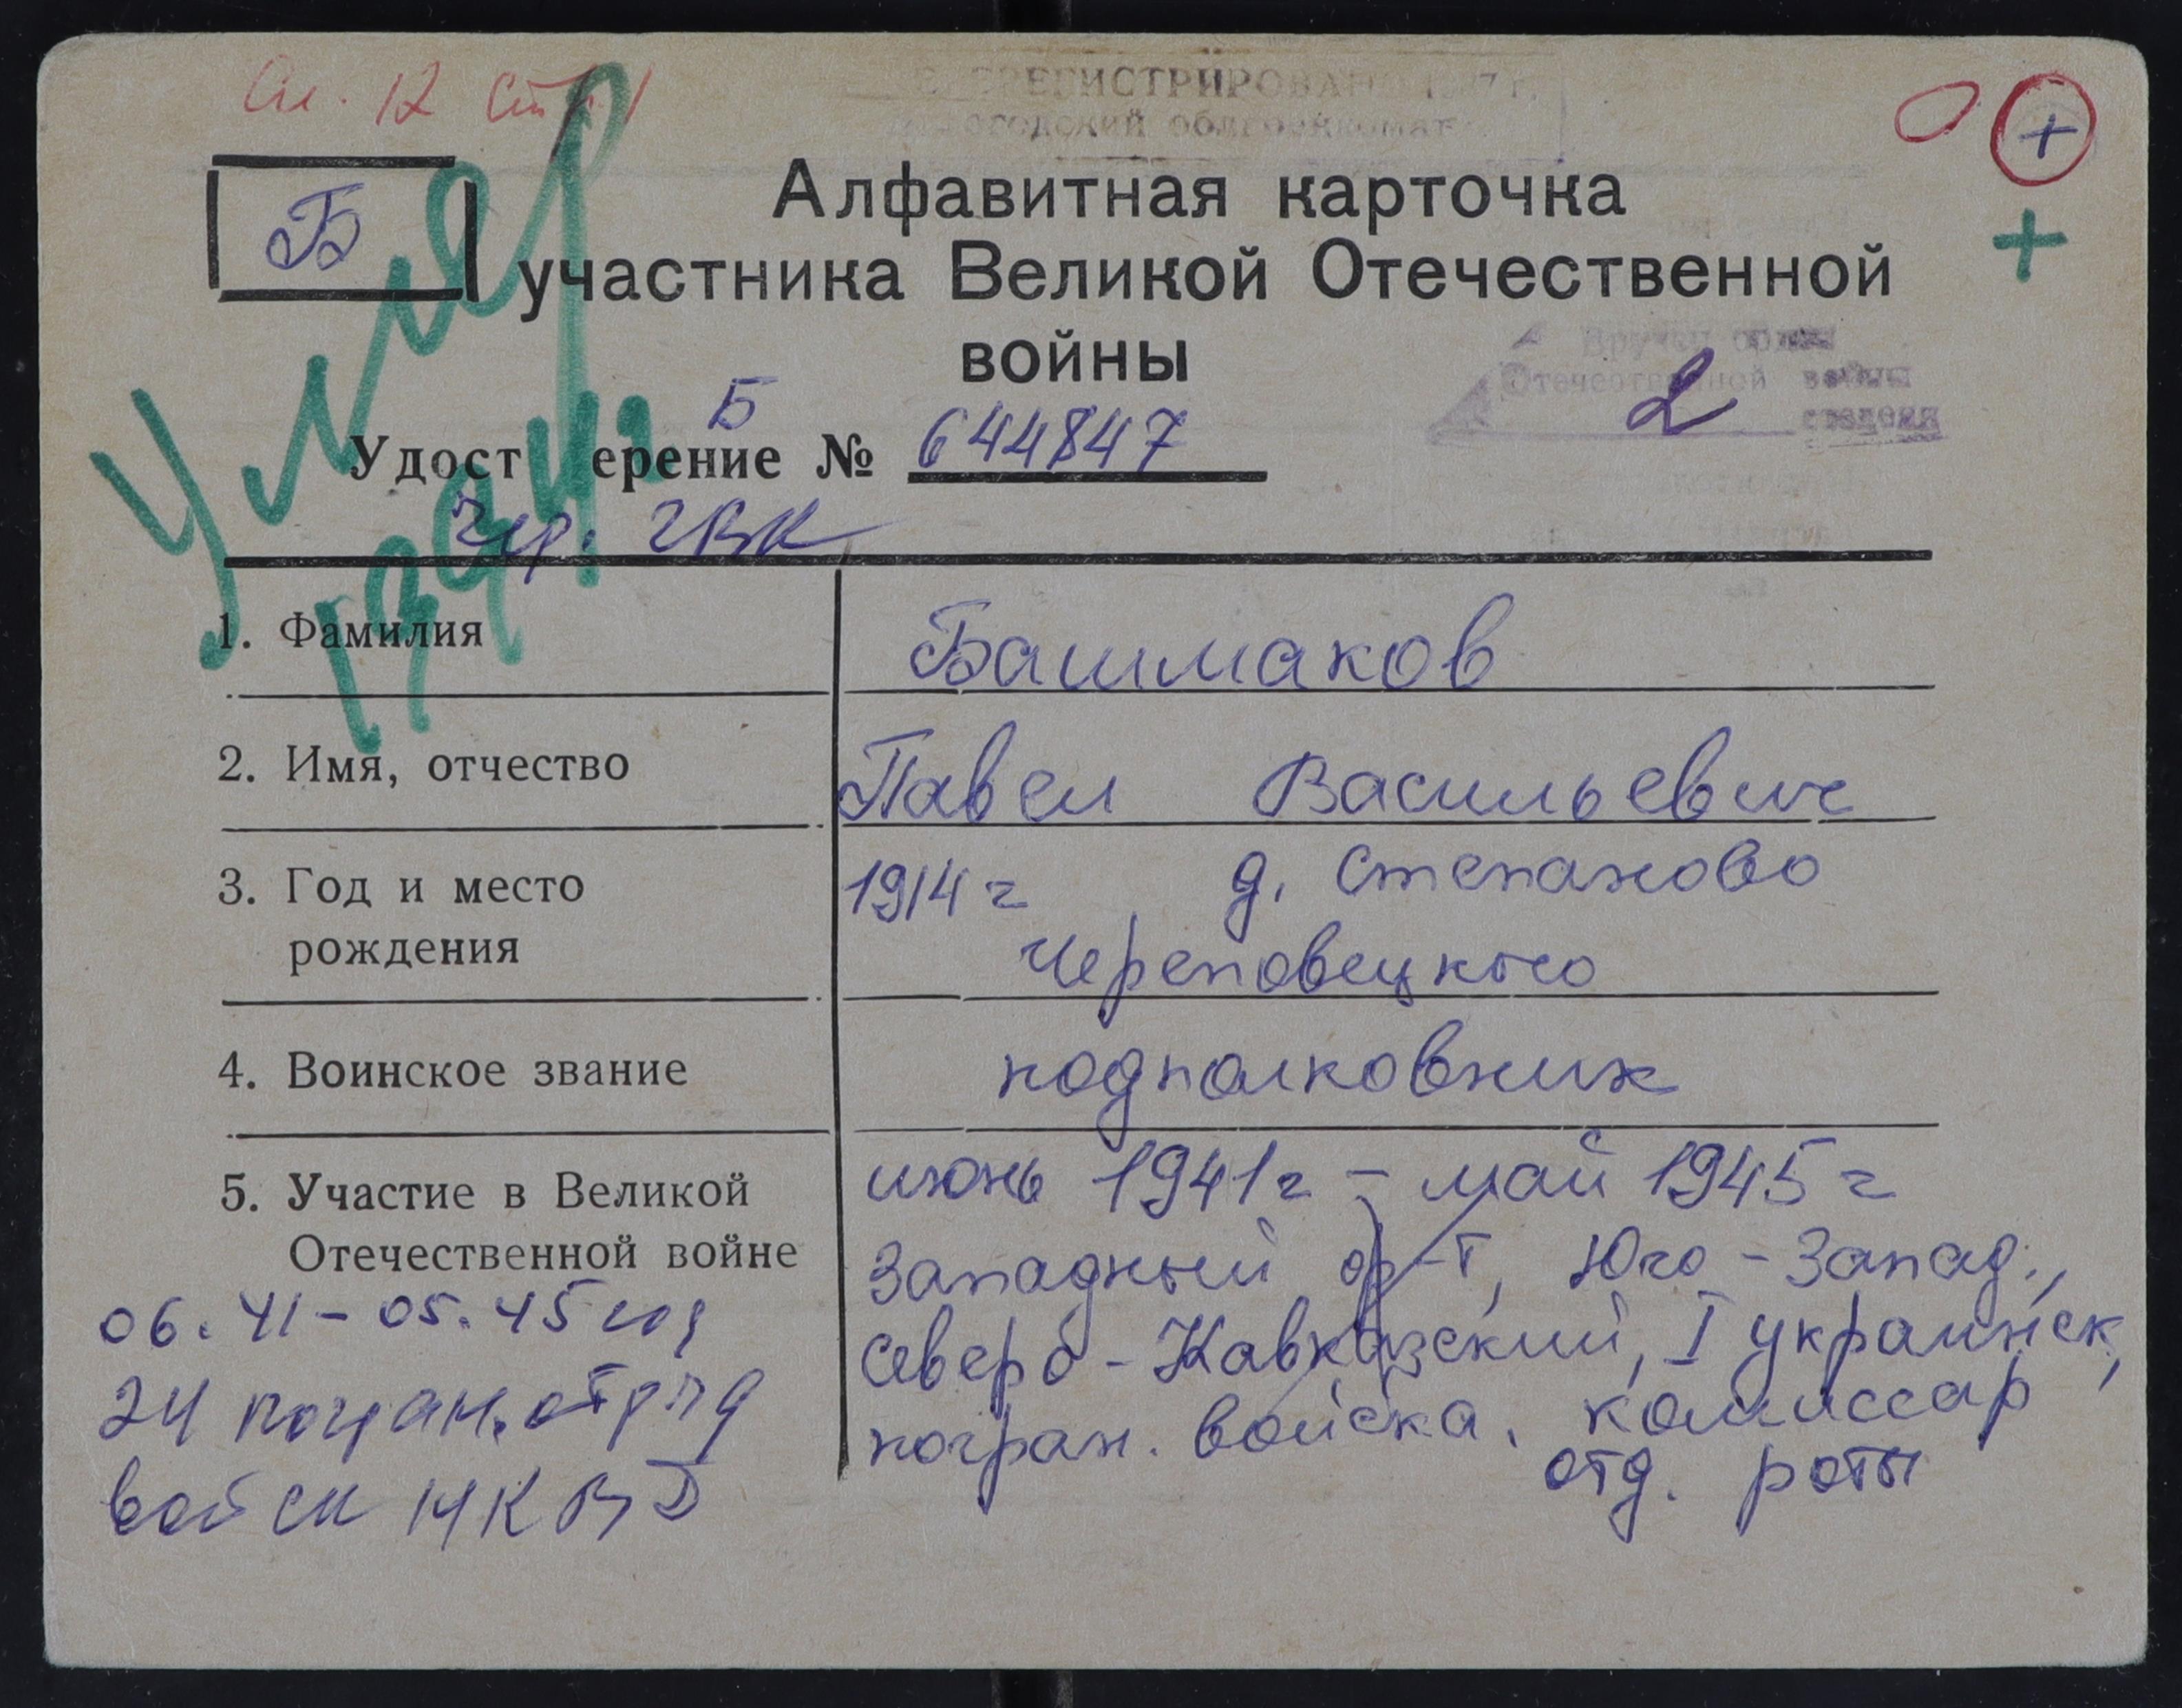 Сп. 12 стр. 1
ЗАРЕГИСТРИРОВАНО
облгорвоенкомат
Б
Алфавитная карточка
участника Великой Отечественной
войны
Вручен орден
Отечественной войны
2 степени
Б
Удостоверение № 644847
Чер. ГВК
Умер
1. Фамилия Башмаков
2. Имя, отчество Павел Васильевич
3. Год и место 1914 г д. Степаново
рождения Череповецкого
4. Воинское звание подполковник
5. Участие в Великой июнь 1941 г – май 1945 г
Отечественной войне Западный фр-т, Юго-Запад.,
06.41 – 05.45 год Северо-Кавказский, I украинск,
24 погран. отряд погран. войска, комиссар
отд. роты
войск НКВД